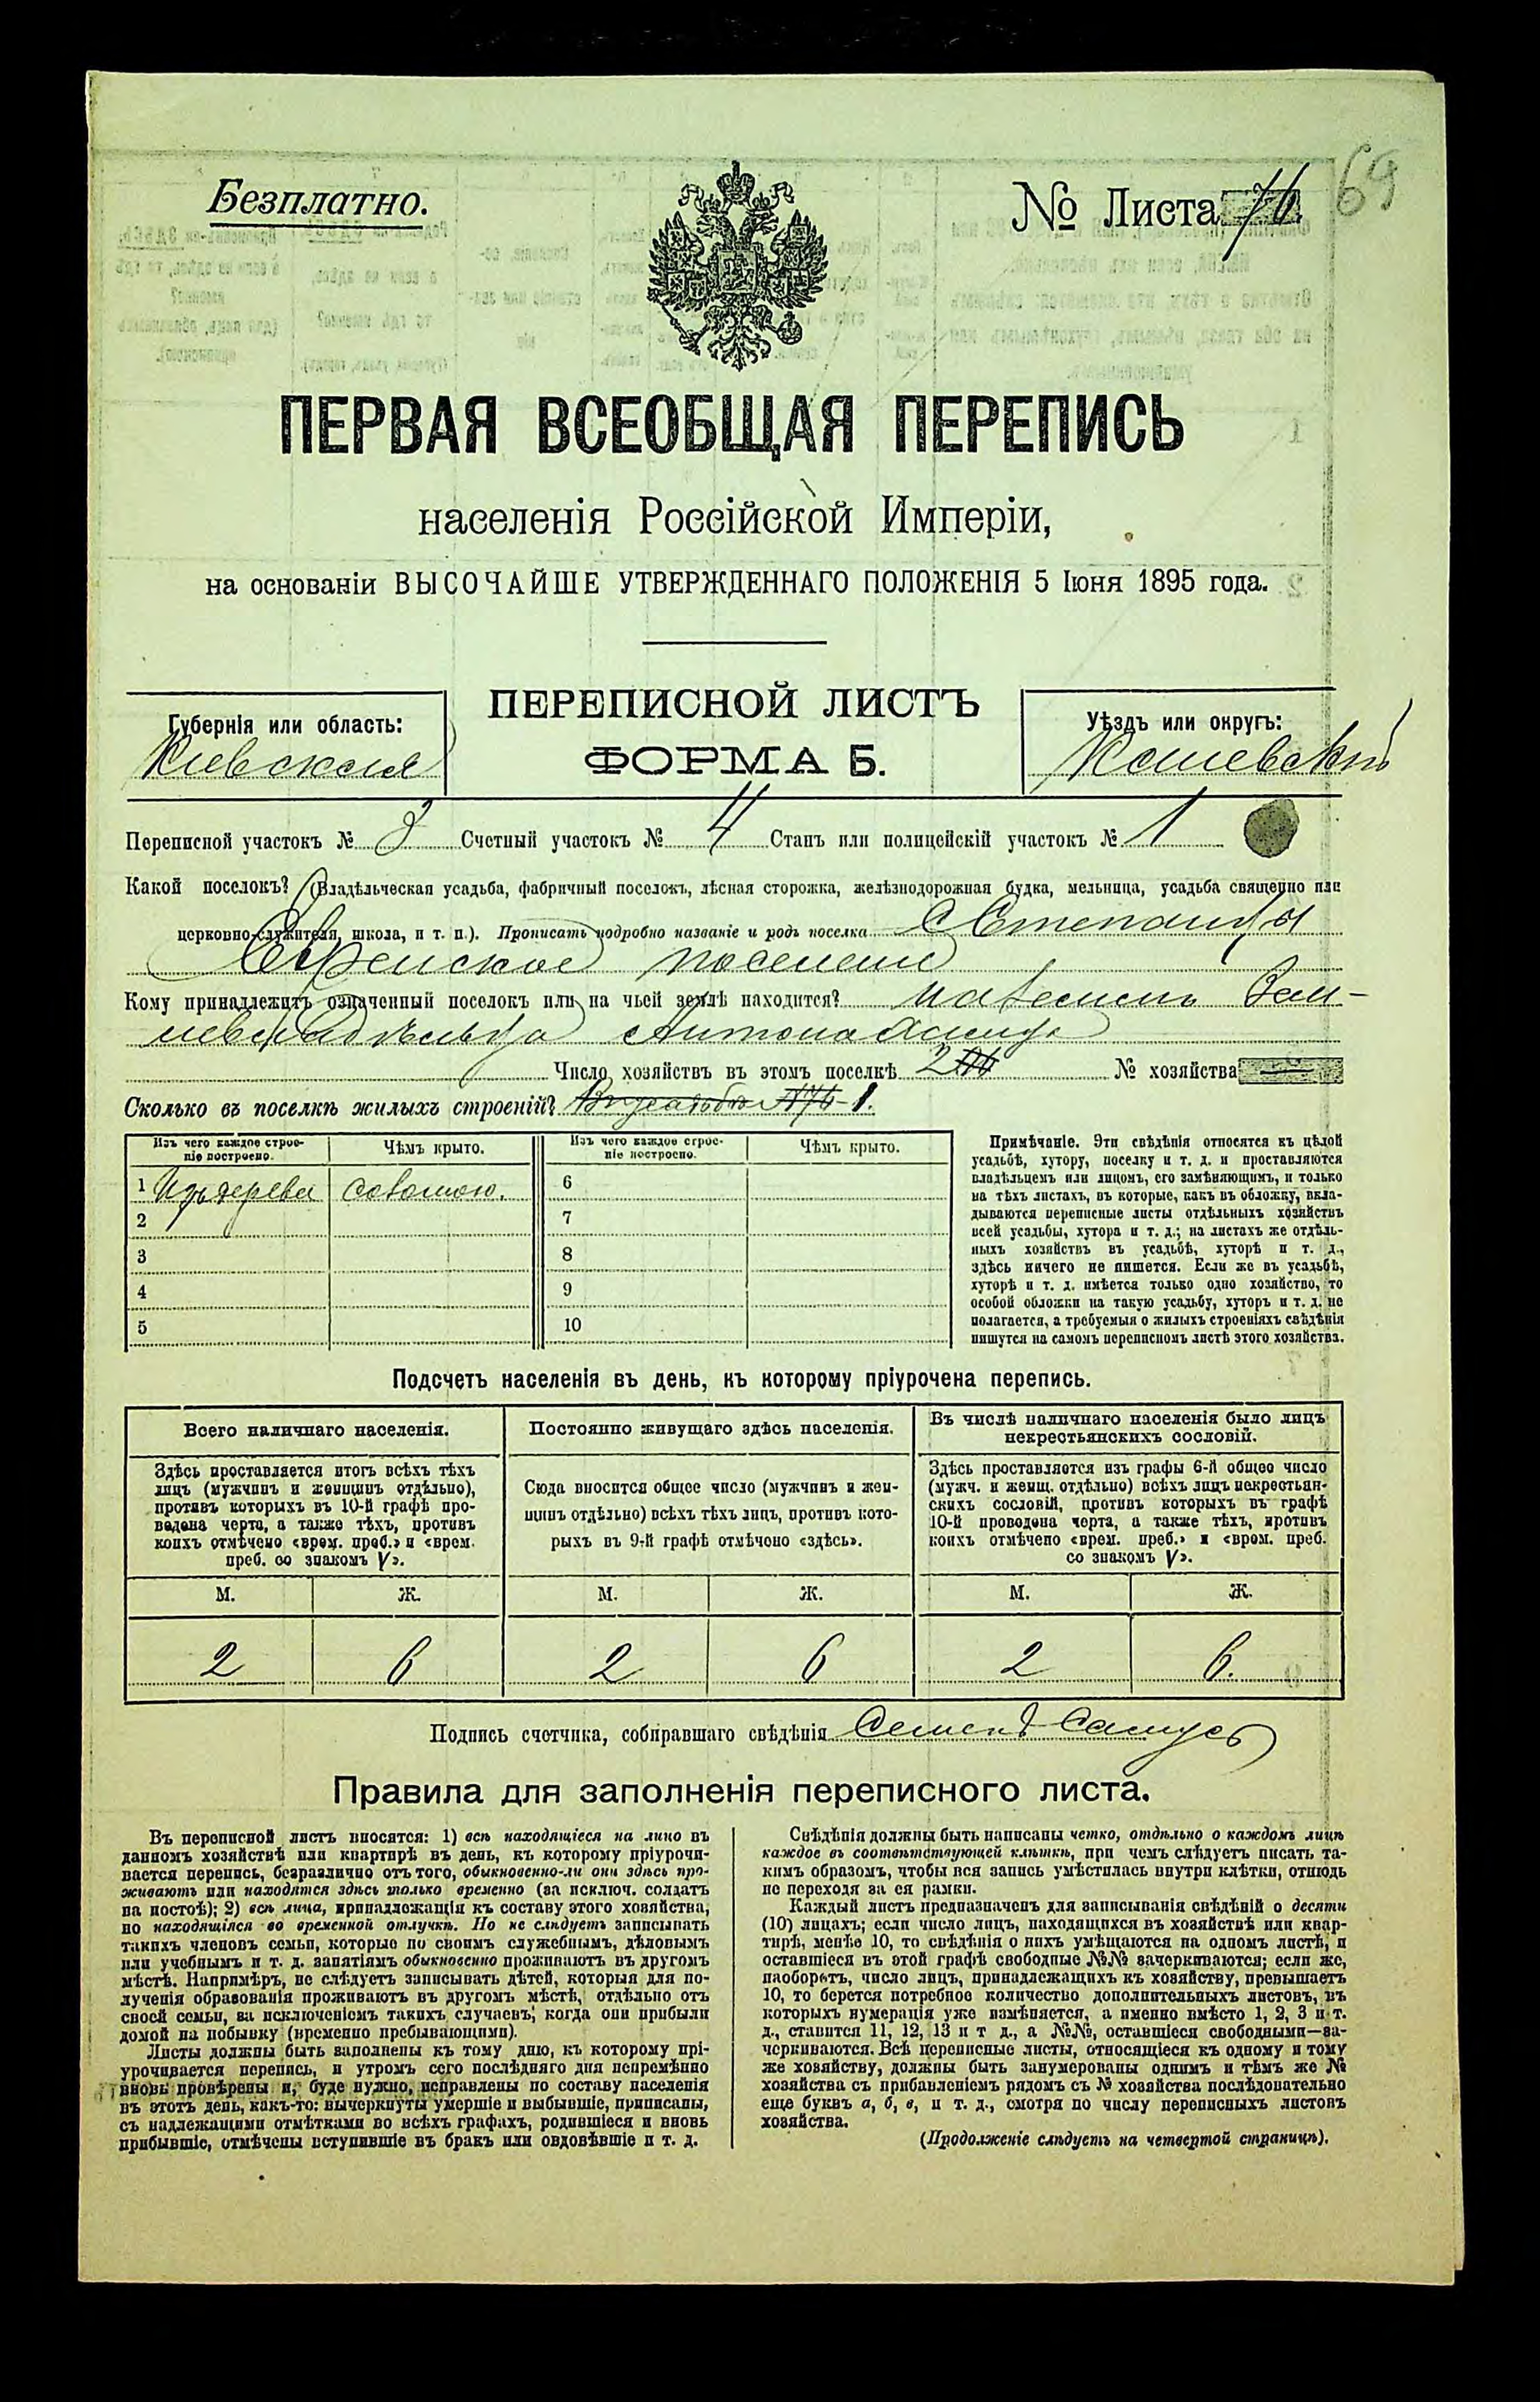 Безплатно.
№ Листа 76
69
ПЕРВАЯ ВСЕОБЩАЯ ПЕРЕПИСЬ
населенія Россійской Имперіи,
на основаніи ВЫСОЧАЙШЕ УТВЕРЖДЕННАГО ПОЛОЖЕНІЯ 5 Іюня 1895 года.
ПЕРЕПИСНОЙ ЛИСТЪ
ФОРМА Б.
Губернія или область:
Кіевская
Уѣздъ или округъ:
Каневскій
Переписной участокъ № 3 Счетный участокъ № 4 Станъ или полицейскій участокъ № 1
Какой поселокъ? (Владѣльческая усадьба, фабричный поселокъ, лѣсная сторожка, желѣзнодорожная будка, мельница, усадьба священно или
церковно-служителя, школа, и т. п.). Прописать подробно названіе и родъ поселка С Степанцы
Еврейское поселеніе
Кому принадлежитъ означенный поселокъ или на чьей землѣ находится? на землѣ Зем-
левладѣльца Антона
Число хозяйствъ въ этомъ поселкѣ 2 № хозяйства
Сколько въ поселкѣ жилыхъ строеній? 1.
Изъ чего каждое строе-
ніе построено.
Чѣмъ крыто.
Изъ чего каждое строе-
ніе построено.
Чѣмъ крыто.
1 Изъ дерева соломою. 6
2 7
3 8
4 9
5 10
Примѣчаніе. Эти свѣдѣнія относятся къ цѣлой
усадьбѣ, хутору, поселку и т. д. и проставляются
владѣльцемъ или лицомъ, его замѣняющимъ, и только
на тѣхъ листахъ, въ которые, какъ въ обложку, вкла-
дываются переписные листы отдѣльныхъ хозяйствъ
всей усадьбы, хутора и т. д.; на листахъ же отдѣль-
ныхъ хозяйствъ въ усадьбѣ, хуторѣ и т. д.,
здѣсь ничего не пишется. Если же въ усадьбѣ,
хуторѣ и т. д. имѣется только одно хозяйство, то
особой обложки на такую усадьбу, хуторъ и т. д. не
полагается, а требуемыя о жилыхъ строеніяхъ свѣдѣнія
пишутся на самомъ переписномъ листѣ этого хозяйства.
Подсчетъ населенія въ день, къ которому пріурочена перепись.
Всего наличнаго населенія.
Постоянно живущаго здѣсь населенія.
Въ числѣ наличнаго населенія было лицъ
некрестьянскихъ сословій.
Здѣсь проставляется итогъ всѣхъ тѣхъ
лицъ (мужчинъ и женщинъ отдѣльно),
противъ которыхъ въ 10-й графѣ про-
ведена черта, а также тѣхъ, противъ
коихъ отмѣчено «врем. преб.» и «врем.
преб. со знакомъ V».
Сюда вносится общее число (мужчинъ и жен-
щинъ отдѣльно) всѣхъ тѣхъ лицъ, противъ кото-
рыхъ въ 9-й графѣ отмѣчено «здѣсь».
Здѣсь проставляется изъ графы 6-й общее число
(мужч. и женщ. отдѣльно) всѣхъ лицъ некрестьян-
скихъ сословій, противъ которыхъ въ графѣ
10-й проведена черта, а также тѣхъ, противъ
коихъ отмѣчено «врем. преб.» и «врем. преб.
со знакомъ V».
М. Ж. М. Ж. М. Ж.
2 6 2 6 2 6.
Подпись счетчика, собиравшаго свѣдѣнія Семенъ Самусь
Правила для заполненія переписного листа.
Въ переписной листъ вносятся: 1) всѣ находящіеся на лицо въ
данномъ хозяйствѣ или квартирѣ въ день, къ которому пріурочи-
вается перепись, безразлично отъ того, обыкновенно-ли они здѣсь про-
живаютъ или находятся здѣсь только временно (за исключ. солдатъ
на постоѣ); 2) всѣ лица, принадлежащія къ составу этого хозяйства,
но находящіяся во временной отлучкѣ. Но не слѣдуетъ записывать
такихъ членовъ семьи, которые по своимъ служебнымъ, дѣловымъ
или учебнымъ и т. д. занятіямъ обыкновенно проживаютъ въ другомъ
мѣстѣ. Напримѣръ, не слѣдуетъ записывать дѣтей, которыя для по-
лученія образованія проживаютъ въ другомъ мѣстѣ, отдѣльно отъ
своей семьи, за исключеніемъ такихъ случаевъ, когда они прибыли
домой на побывку (временно пребывающими).
Листы должны быть заполнены къ тому дню, къ которому прі-
урочивается перепись, и утромъ сего послѣдняго дня непремѣнно
вновь провѣрены и, буде нужно, исправлены по составу населенія
въ этотъ день, какъ-то: вычеркнуты умершіе и выбывшіе, приписаны,
съ надлежащими отмѣтками во всѣхъ графахъ, родившіеся и вновь
прибывшіе, отмѣчены вступившіе въ бракъ или овдовѣвшіе и т. д.
Свѣдѣнія должны быть написаны четко, отдѣльно о каждомъ лицѣ
каждое въ соотвѣтствующей клѣткѣ, при чемъ слѣдуетъ писать та-
кимъ образомъ, чтобы вся запись умѣстилась внутри клѣтки, отнюдь
не переходя за ея рамки.
Каждый листъ предназначенъ для записыванія свѣдѣній о десяти
(10) лицахъ; если число лицъ, находящихся въ хозяйствѣ или квар-
тирѣ, менѣе 10, то свѣдѣнія о нихъ умѣщаются на одномъ листѣ, и
оставшіеся въ этой графѣ свободные №№ зачеркиваются; если же,
наоборотъ, число лицъ, принадлежащихъ къ хозяйству, превышаетъ
10, то берется потребное количество дополнительныхъ листовъ, въ
которыхъ нумерація уже измѣняется, а именно вмѣсто 1, 2, 3 и т.
д., ставится 11, 12, 13 и т д., а №№, оставшіеся свободными—за-
черкиваются. Всѣ переписные листы, относящіеся къ одному и тому
же хозяйству, должны быть занумерованы однимъ и тѣмъ же №
хозяйства съ прибавленіемъ рядомъ съ № хозяйства послѣдовательно
еще буквъ а, б, в, и т. д., смотря по числу переписныхъ листовъ
хозяйства.
(Продолженіе слѣдуетъ на четвертой страницѣ).